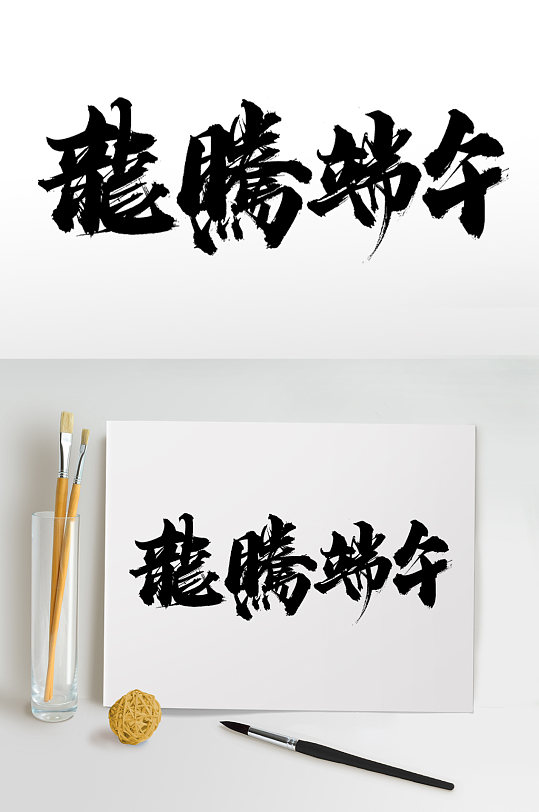 龍騰端午
龍騰端午